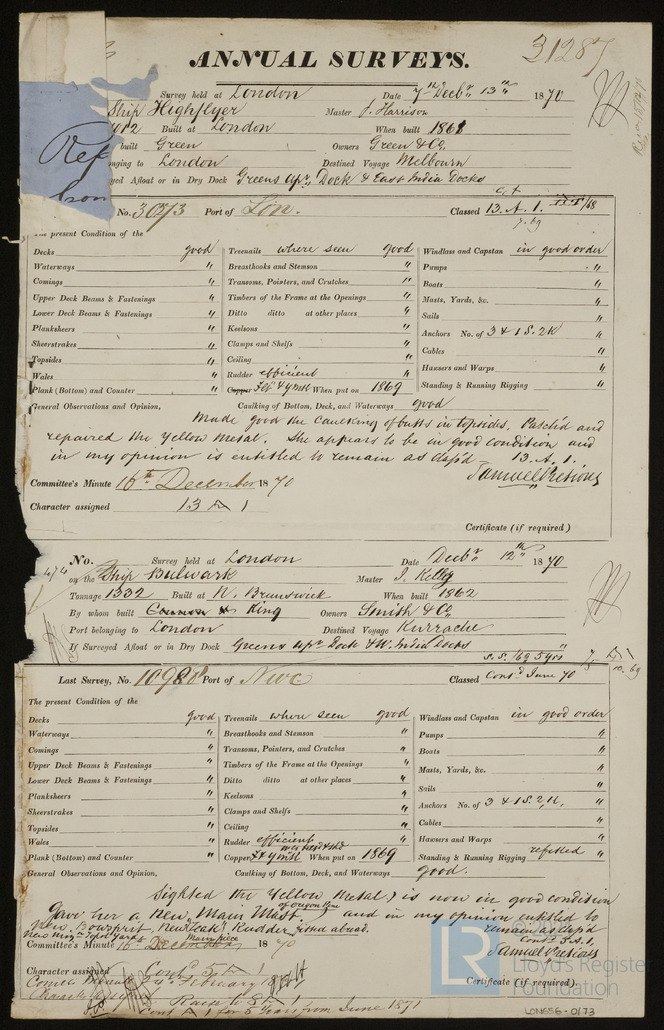 31287
ANNUAL SURVEYS.
Survey held at London Date 7th Decbr 13th 1870
Ship Highflyer Master J. Harrison
1012 Built at London When built 1861
built Green Owners Green & Co.
Belonging to London Destined Voyage Melbourn
Afloat or in Dry Dock Greens Upr. Dock & East India Docks
No. 30273 Port of Lon. Classed 13. A. 1.
7. 69
The present Condition of the
Decks good Treenails where seen good Windlass and Capstan in good order
Waterways " Breasthooks and Stemson " Pumps "
Comings " Transoms, Pointers, and Crutches " Boats "
Upper Deck Beams & Fastenings " Timbers of the Frame at the Openings " Masts, Yards, &c. "
Lower Deck Beams & Fastenings " Ditto ditto at other places " Sails "
Planksheers " Keelsons " Anchors No. of 3 & 1 S. 2 K "
Sheerstrakes " Clamps and Shelfs " Cables "
Topsides " Ceiling " Hawsers and Warps "
Wales " Rudder efficient " Standing & Running Rigging "
Plank (Bottom) and Counter " Copper Felt & ymtl When put on 1869
General Observations and Opinion, Caulking of Bottom, Deck, and Waterways good
Made good the Caulking of butts in topsides. Patch'd and
repaired the Yellow Metal. She appears to be in good condition and
in my opinion is entitled to remain as clas'd 13. A. 1.
Samuel Pretious
Committee's Minute 16th December 1870
Character assigned 13 A 1
Certificate (if required)
474
No. Survey held at London Date Decbr 12th 1870
on the Ship Bulwark Master I. Kelly
Tonnage 1332 Built at N. Brunswick When built 1862
By whom built King Owners Smith & Co
Port belonging to London Destined Voyage Kurrachie
If Surveyed Afloat or in Dry Dock Greens Upr Dock & W. India Docks
S.S./69 5 yrs
10. 69
Last Survey, No. 10988 Port of Nwc Classed Contd June 70
The present Condition of the
Decks good Treenails where seen good Windlass and Capstan in good order
Waterways " Breasthooks and Stemson " Pumps "
Comings " Transoms, Pointers, and Crutches " Boats "
Upper Deck Beams & Fastenings " Timbers of the Frame at the Openings " Masts, Yards, &c. "
Lower Deck Beams & Fastenings " Ditto ditto at other places " Sails "
Planksheers " Keelsons " Anchors No. of 3 & 1 S. 2 K. "
Sheerstrakes " Clamps and Shelfs " Cables "
Topsides " Ceiling " Hawsers and Warps "
Wales " Rudder efficient " Standing & Running Rigging refitted "
Plank (Bottom) and Counter " Copper F & ymtl When put on 1869
General Observations and Opinion, Caulking of Bottom, Deck, and Waterways good.
Sighted the Yellow Metal, is now in good condition
Gave her a New Main Mast of Oregon Pine and in my opinion entitled to
New Bowsprit New Rudder Main piece fitted abroad. remain as clas'd
Contd 5. A. 1.
Samuel Pretious
Committee's Minute 16 December 1870
Character assigned Contd 5 A 1
February
Certificate (if required).
Contd A 1 for 5 Years from June 1871
LR Lloyd's Register
Foundation
LON656-0173